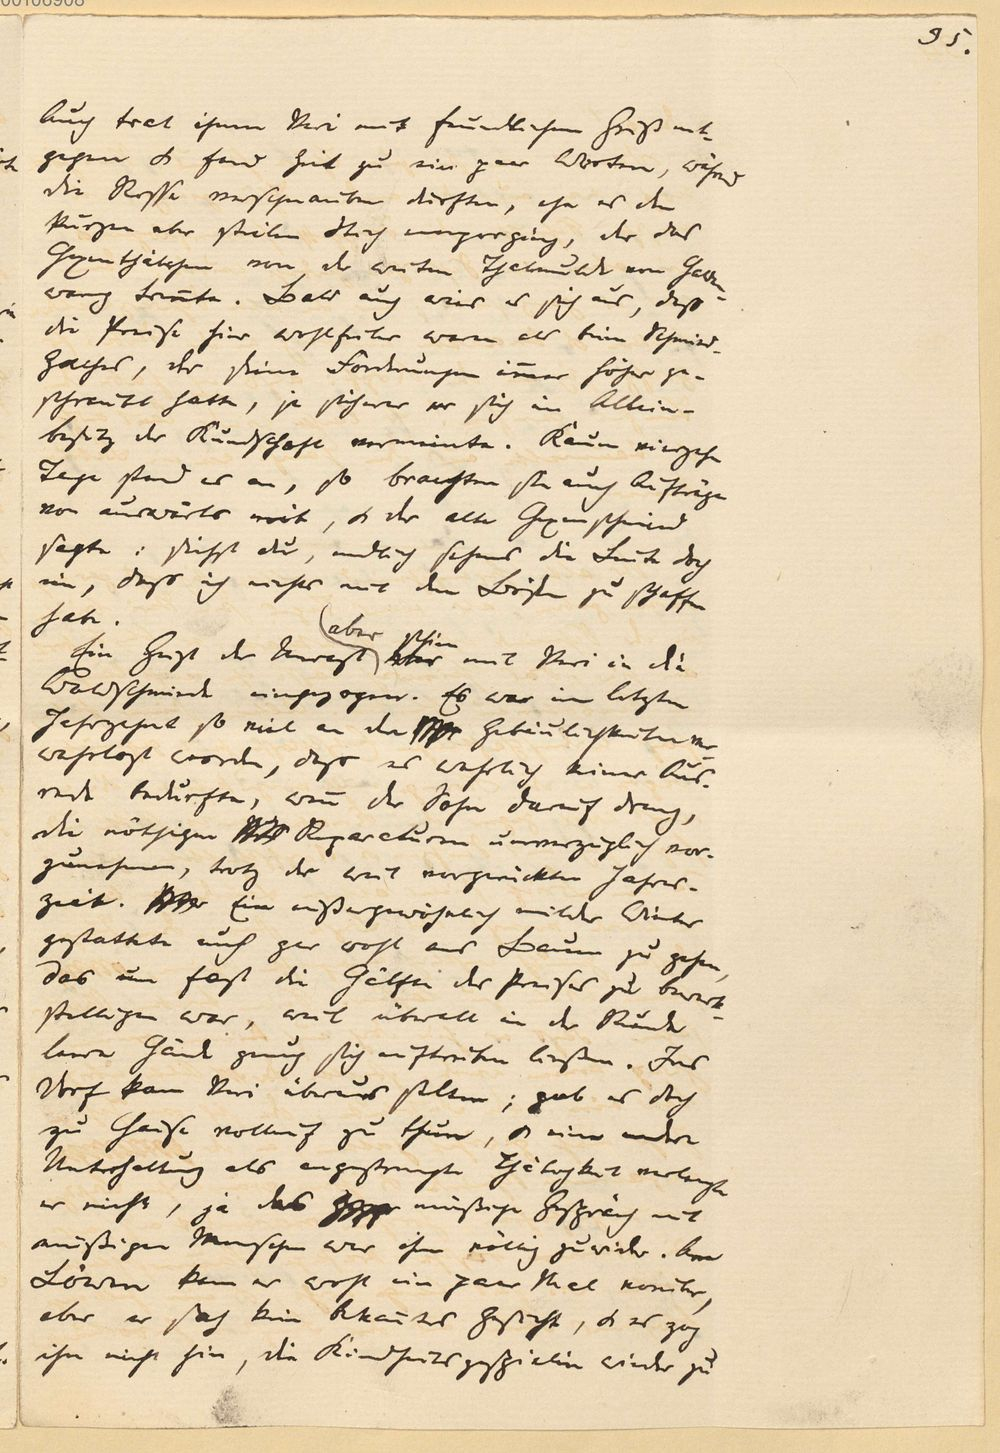 00106908
95.
Auch trat ihnen Veri mit freundlichem Gruß ent-
gegen & fand Zeit zu ein paar Worten, während
die Rosse verschnauben durften, ehe es den
kurzen aber steilen Stich emporging, der das
Hexenthälchen von der weiten Thalmulde von
wang trennte. Bald auch wies es sich aus, daß
die Preise hier wohlfeiler waren als beim Schmied-
der seine Forderungen immer höher ge-
schraubt hatte, je sicherer er sich im Allein-
besitz der Kundschaft vermeinte. Kaum vierzehn
Tage stand es an, so brachten sie auch Aufträge
von auswärts mit, & der alte Hexenschmied
sagte: siehst du, endlich sehens die Leute doch
ein, daß ich nichts mit dem Bösen zu schaffen
habe.
Ein Geist der Unrast (aber) schien mit Veri in die
Waldschmiede eingezogen. Es war im letzten
Jahrzehnt so viel an den Gebäulichkeiten ver-
wahrlost worden, daß es wahrlich keiner Aus-
rede bedurfte, wenn der Sohn darauf drang,
die nöthigen Reparaturen unverzüglich vor-
zunehmen, trotz der weit vorgerückten Jahres-
zeit. Ein außergewöhnlich milder Winter
gestattete auch gar wohl ans Bauen zu gehen,
das um fast die Hälfte des Preises zu bewerk-
stelligen war, weil überall in der Runde
leere Hände genug sich auftreiben ließen. Ins
Dorf kam Veri überaus selten; gab es doch
zu Hause vollauf zu thun, & eine andere
Unterhaltung als angestrengte Thätigkeit verlangte
er nicht, ja das müßige Gespräch mit
müßigen Menschen war ihm völlig zuwider. Am
Löwen kam er wohl ein paar Mal vorüber,
aber er sah kein bekanntes Gesicht, & es zog
ihn nicht hin, die Kindheitsgespielin wieder zu